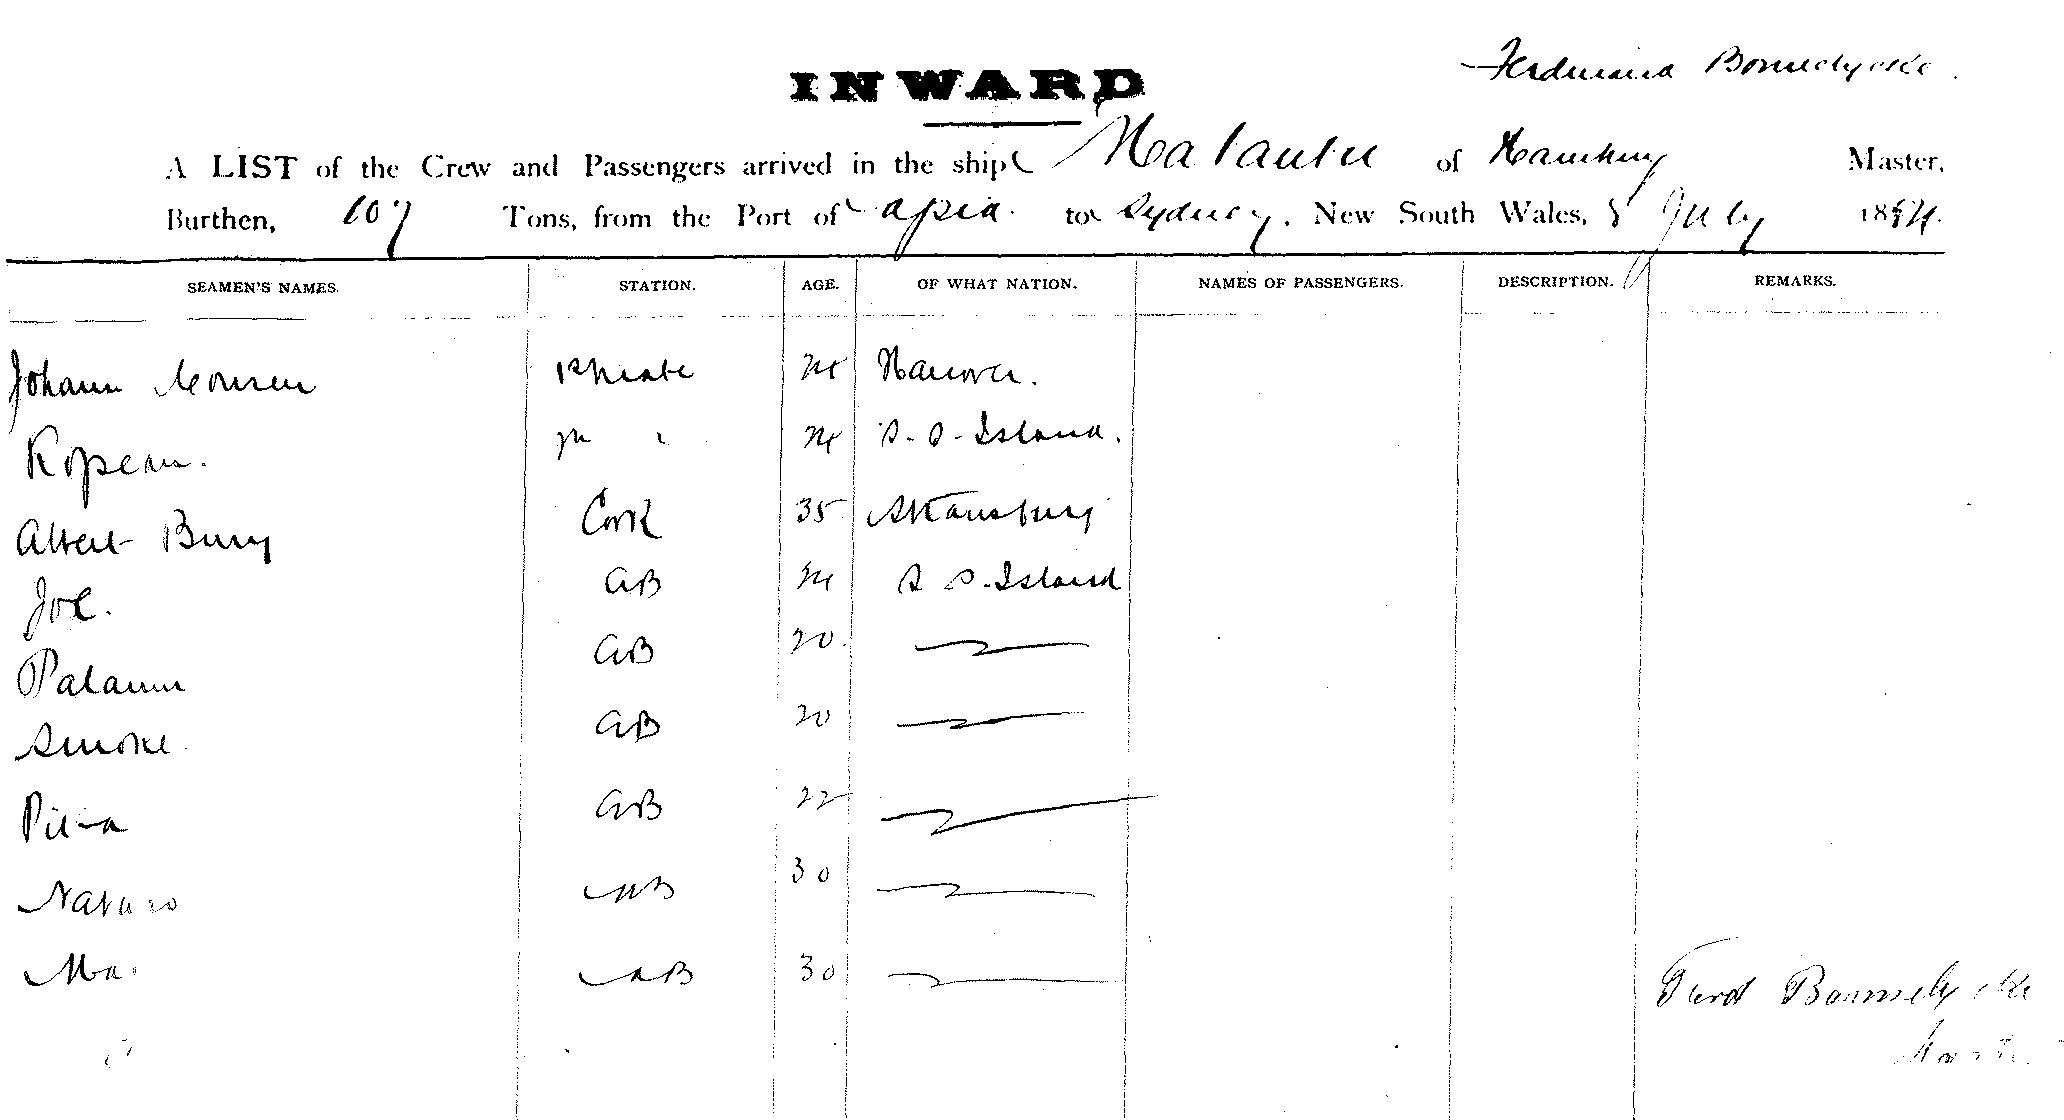 INWARD
Ferdinand Bonnelycke.
A LIST of the Crew and Passengers arrived in the ship of Hamburg Master,
Burthen, 107 Tons, from the Port of Apia. to Sydney. New South Wales, 8 July 18
SEAMEN'S NAMES. STATION. AGE. OF WHAT NATION. NAMES OF PASSENGERS. DESCRIPTION. REMARKS.
Johann 24 Hanover.
Kopean. 24 S. S. Island.
Albert Bury Cook 35 Strausburg
Joe. AB 24 S S. Island
AB 20
Smoke AB 20
Pita AB 22
AB 30
Ma. AB 30
Ferd Bonnelycke
Master